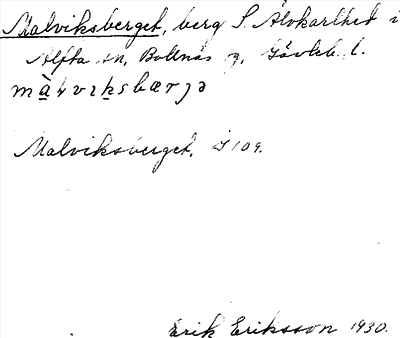 Malviksberget, berg S. Älvkarlhed i
Alfta sn, Bollnäs z, Gävleb. l.
màlviksbærjə
Malviksberget, J 109.
Erik Eriksson 1930.